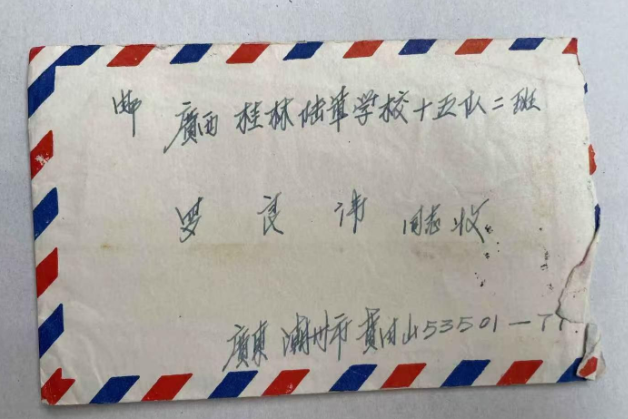 邮 廣西 桂林陆軍学校十五队二班
罗良伟 同志收
廣東 潮州市 黄田山53501-77